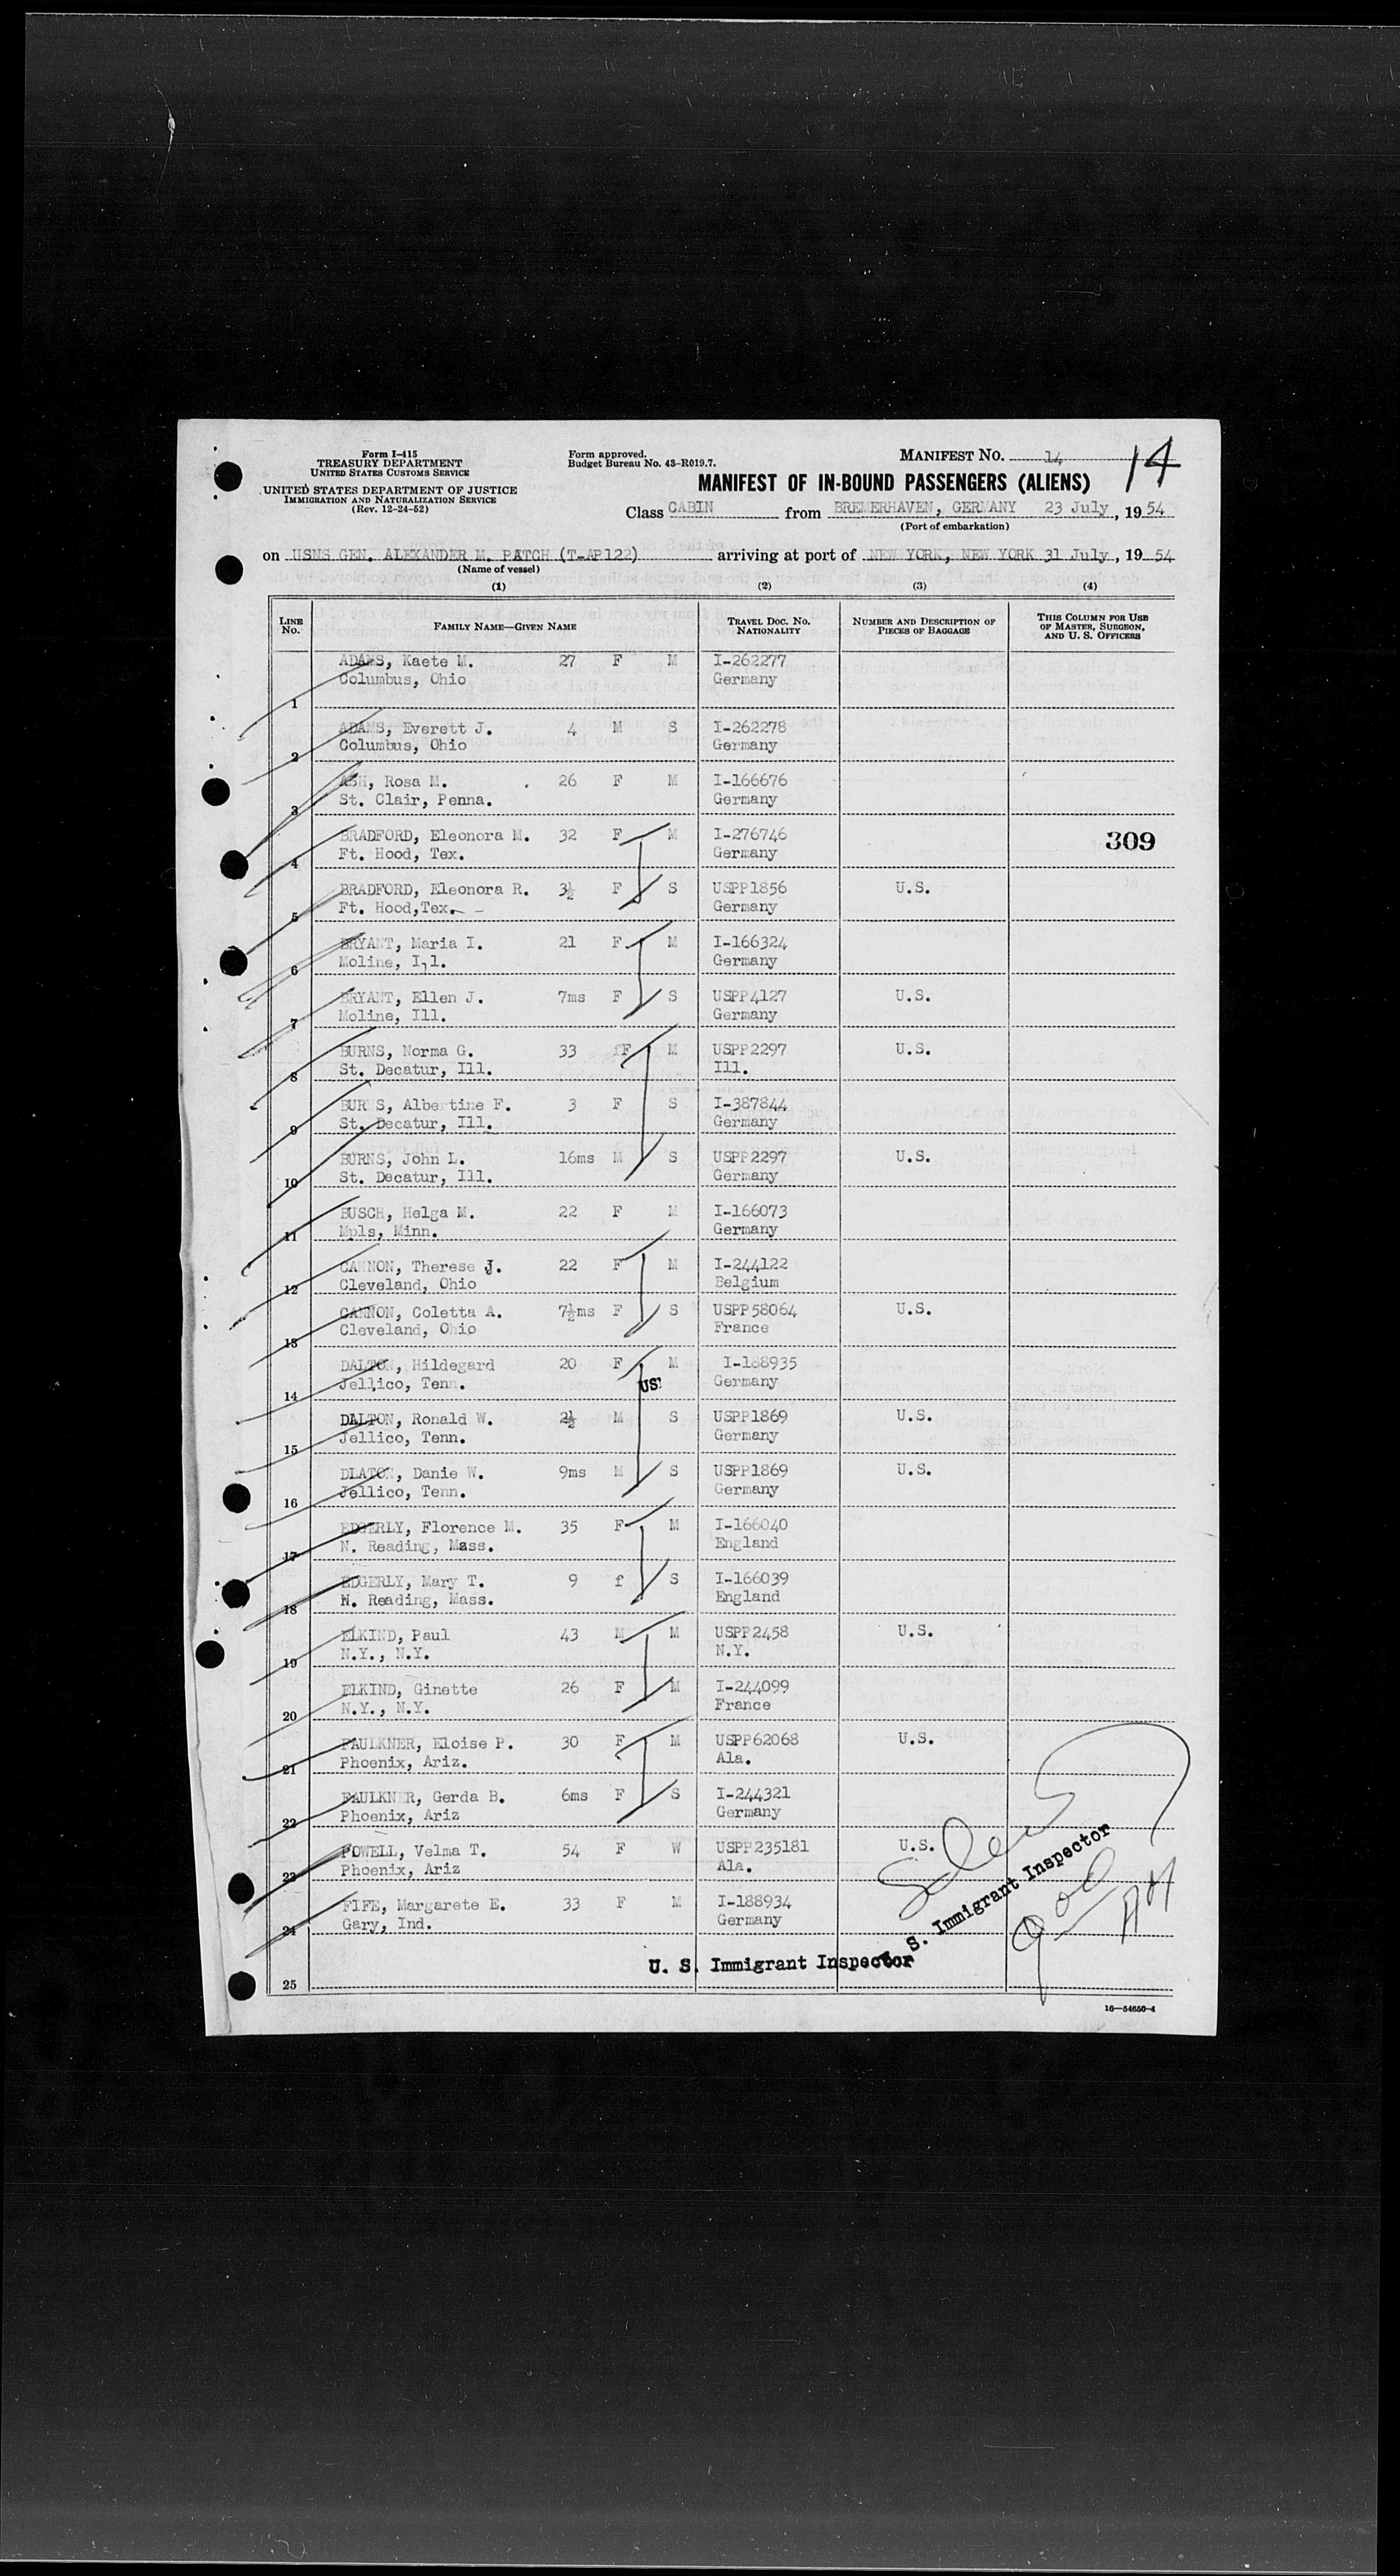 Form I-415
TREASURY DEPARTMENT
UNITED STATES CUSTOMS SERVICE
UNITED STATES DEPARTMENT OF JUSTICE
IMMIGRATION AND NATURALIZATION SERVICE
(Rev. 12-24-52)
Form approved.
Budget Bureau No. 43-R019.7.
MANIFEST NO. 14 14
MANIFEST OF IN-BOUND PASSENGERS (ALIENS)
Class CABIN from BREMERHAVEN, GERMANY 23 July, 1954
(Port of embarkation)
on USNS GEN. ALEXANDER M. PATCH (T-AP122) arriving at port of NEW YORK, NEW YORK 31 July, 1954
(Name of vessel)
(1) (2) (3) (4)
LINE NO. FAMILY NAME—GIVEN NAME TRAVEL DOC. NO. NATIONALITY NUMBER AND DESCRIPTION OF PIECES OF BAGGAGE THIS COLUMN FOR USE OF MASTER, SURGEON, AND U. S. OFFICERS
ADAMS, Kaete M. 27 F M I-262277
Columbus, Ohio Germany
1
ADAMS, Everett J. 4 M S I-262278
Columbus, Ohio Germany
2
ASH, Rosa M. 26 F M I-166676
St. Clair, Penna. Germany
3
BRADFORD, Eleonora M. 32 F M I-276746 309
Ft. Hood, Tex. Germany
4
BRADFORD, Eleonora R. 3½ F S USPP1856 U.S.
Ft. Hood,Tex. Germany
5
BRYANT, Maria I. 21 F M I-166324
Moline, Ill. Germany
6
BRYANT, Ellen J. 7ms F S USPP4127 U.S.
Moline, Ill. Germany
7
BURNS, Norma G. 33 fF M USPP2297 U.S.
St. Decatur, Ill. Ill.
8
BURNS, Albertine F. 3 F S I-387844
St. Decatur, Ill. Germany
9
BURNS, John L. 16ms M S USPP2297 U.S.
St. Decatur, Ill. Germany
10
BUSCH, Helga M. 22 F M I-166073
Mpls, Minn. Germany
11
CANNON, Therese J. 22 F M I-244122
Cleveland, Ohio Belgium
12
CANNON, Coletta A. 7½ms F S USPP58064 U.S.
Cleveland, Ohio France
13
DALTON, Hildegard 20 F M I-188935
Jellico, Tenn. US Germany
14
DALTON, Ronald W. 2½ M S USPP1869 U.S.
Jellico, Tenn. Germany
15
DLATON, Danie W. 9ms M S USPP1869 U.S.
Jellico, Tenn. Germany
16
EDGERLY, Florence M. 35 F M I-166040
N. Reading, Mass. England
17
EDGERLY, Mary T. 9 f S I-166039
N. Reading, Mass. England
18
ELKIND, Paul 43 M M USPP2458 U.S.
N.Y., N.Y. N.Y.
19
ELKIND, Ginette 26 F M I-244099
N.Y., N.Y. France
20
FAULKNER, Eloise P. 30 F M USPP62068 U.S.
Phoenix, Ariz. Ala.
21
FAULKNER, Gerda B. 6ms F S I-244321
Phoenix, Ariz Germany
22
POWELL, Velma T. 54 F W USPP235181 U.S.
Phoenix, Ariz Ala.
23
FIFE, Margarete E. 33 F M I-188934
Gary, Ind. Germany
24
S. Immigrant Inspector
U. S. Immigrant Inspector
25
16—54650-4